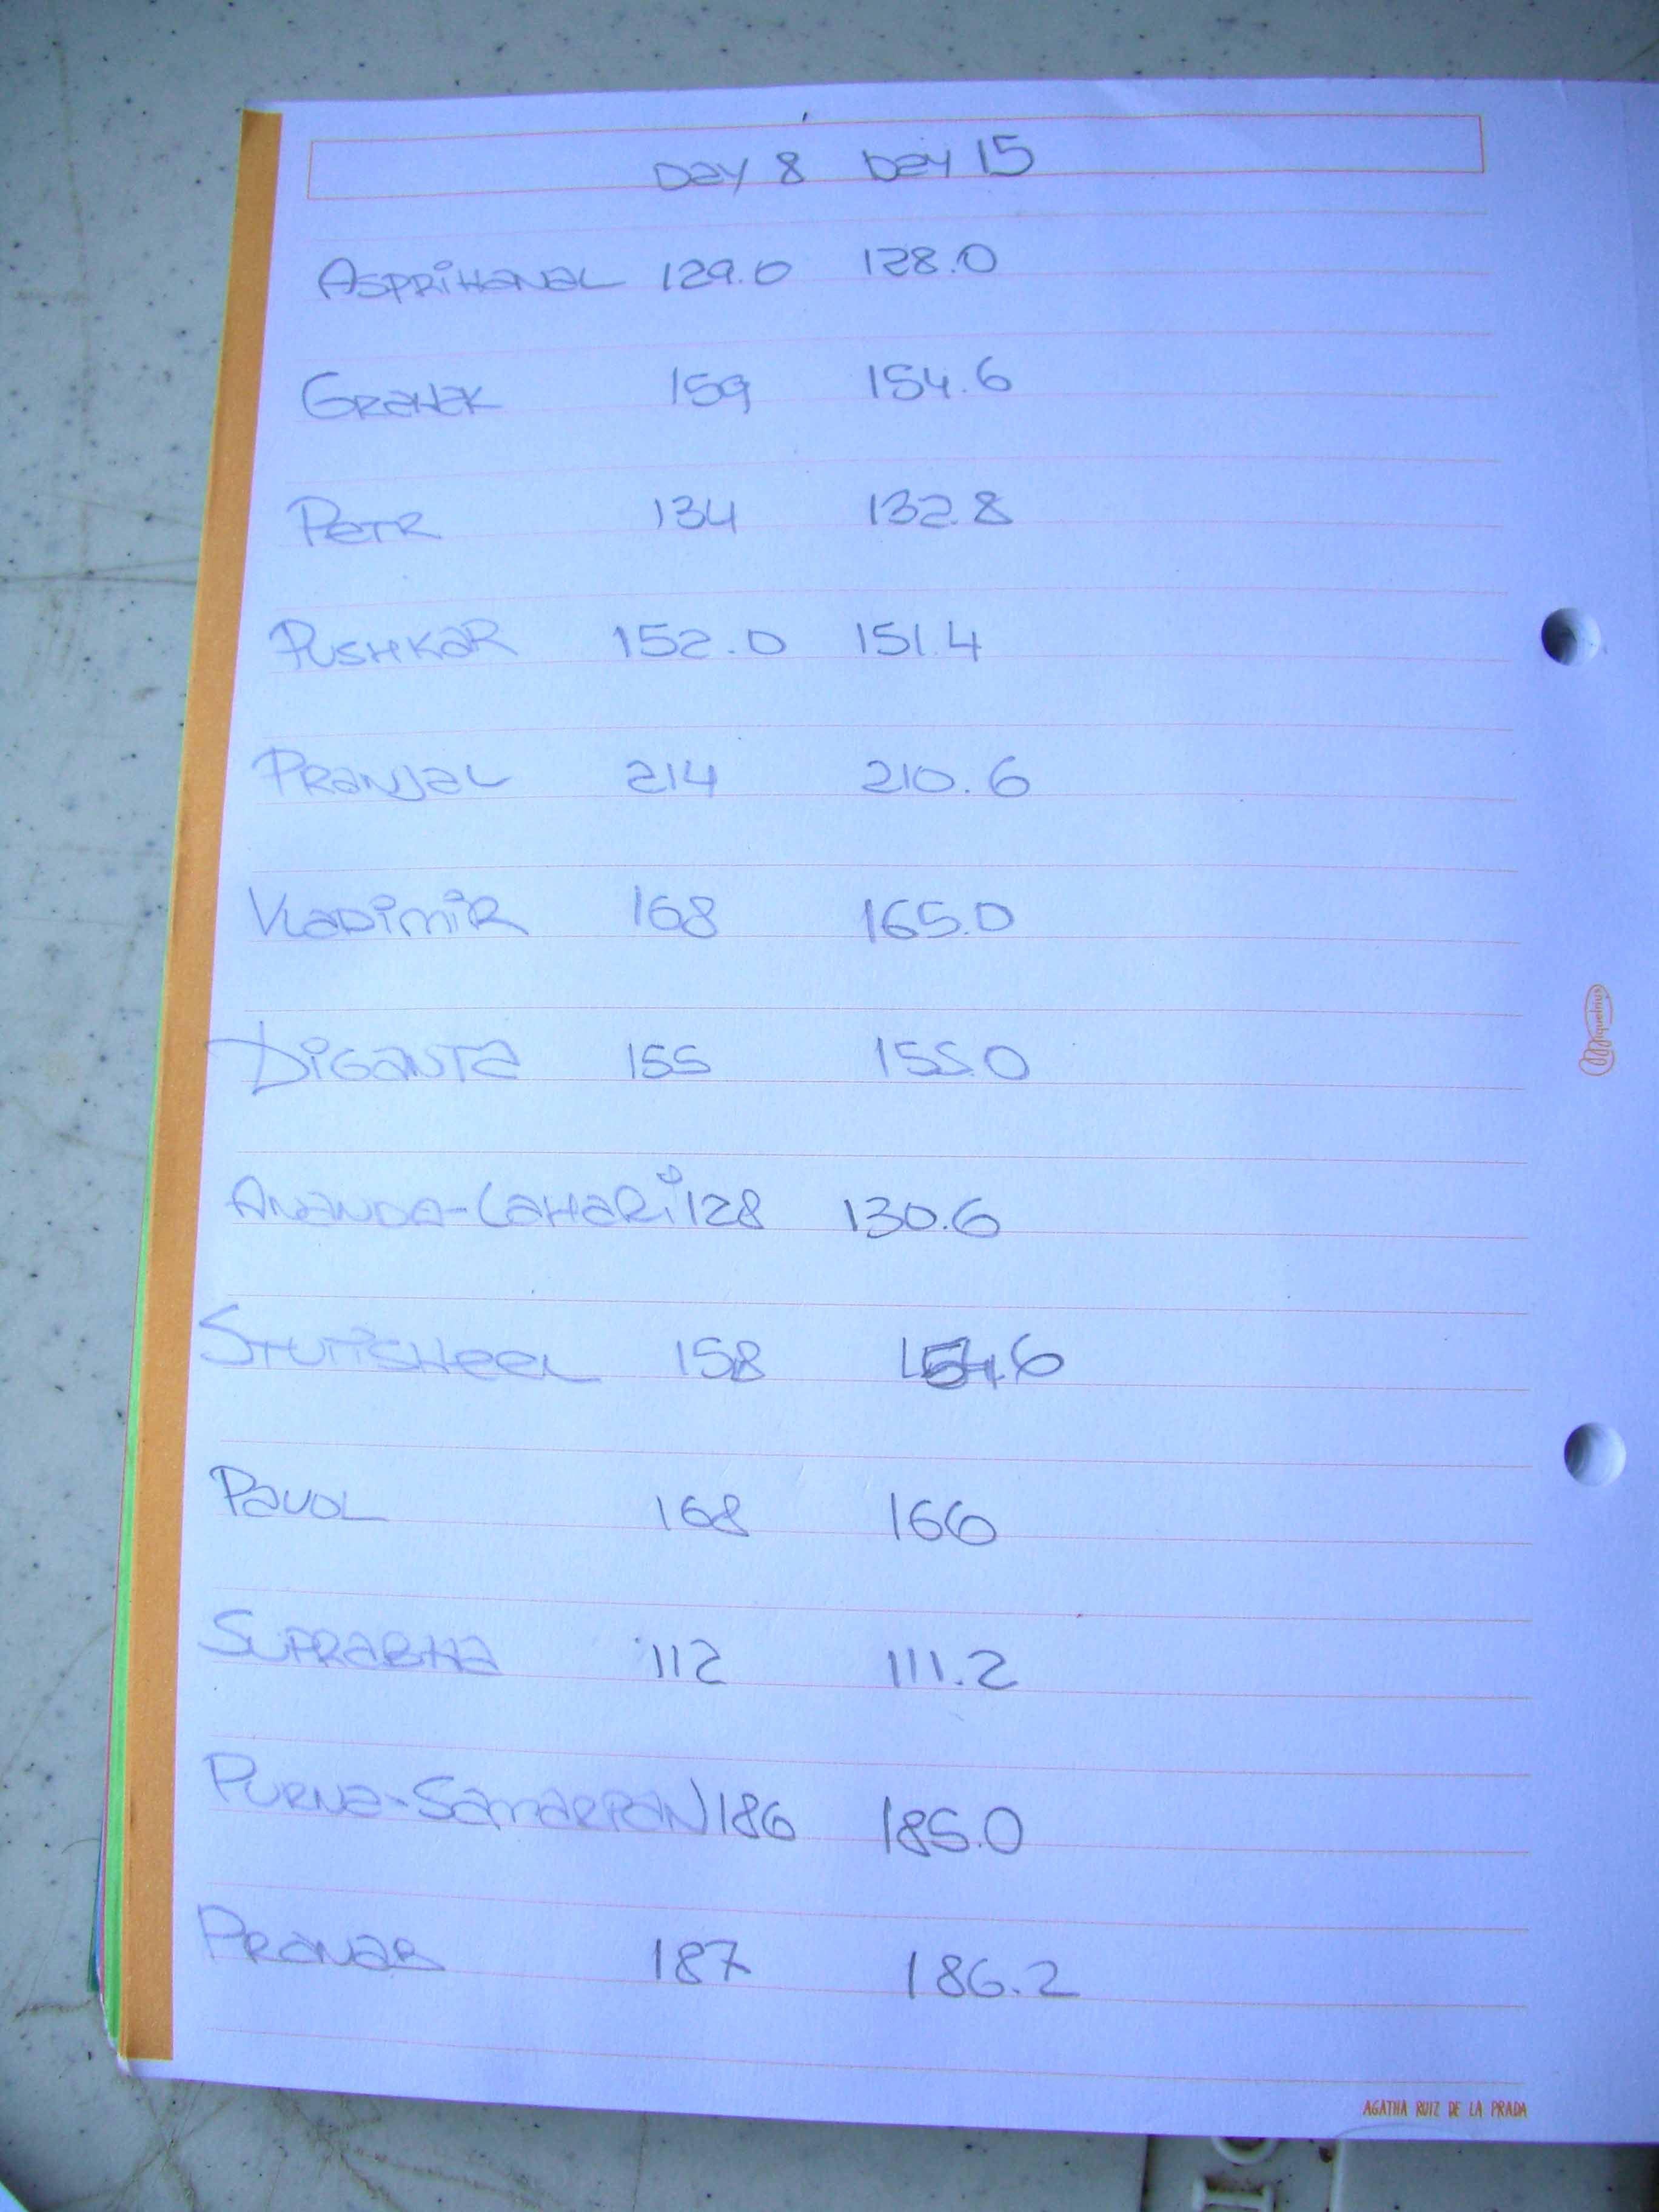 Day 8 Day 15
ASPRIHANAL 129.0 128.0
GRAHAK 159 154.6
PETR 134 132.8
PUSHKAR 152.0 151.4
PRANJAL 214 210.6
VLADIMIR 168 165.0
DIGANTA 155 155.0
ANANDA-LAHARI 128 130.6
STUTISHEEL 158 154.6
PAVOL 168 166
SUPRABHA 112 111.2
PURNA-SAMARPAN 186 185.0
PRANAB 187 186.2
Miquelrius
AGATHA RUIZ DE LA PRADA